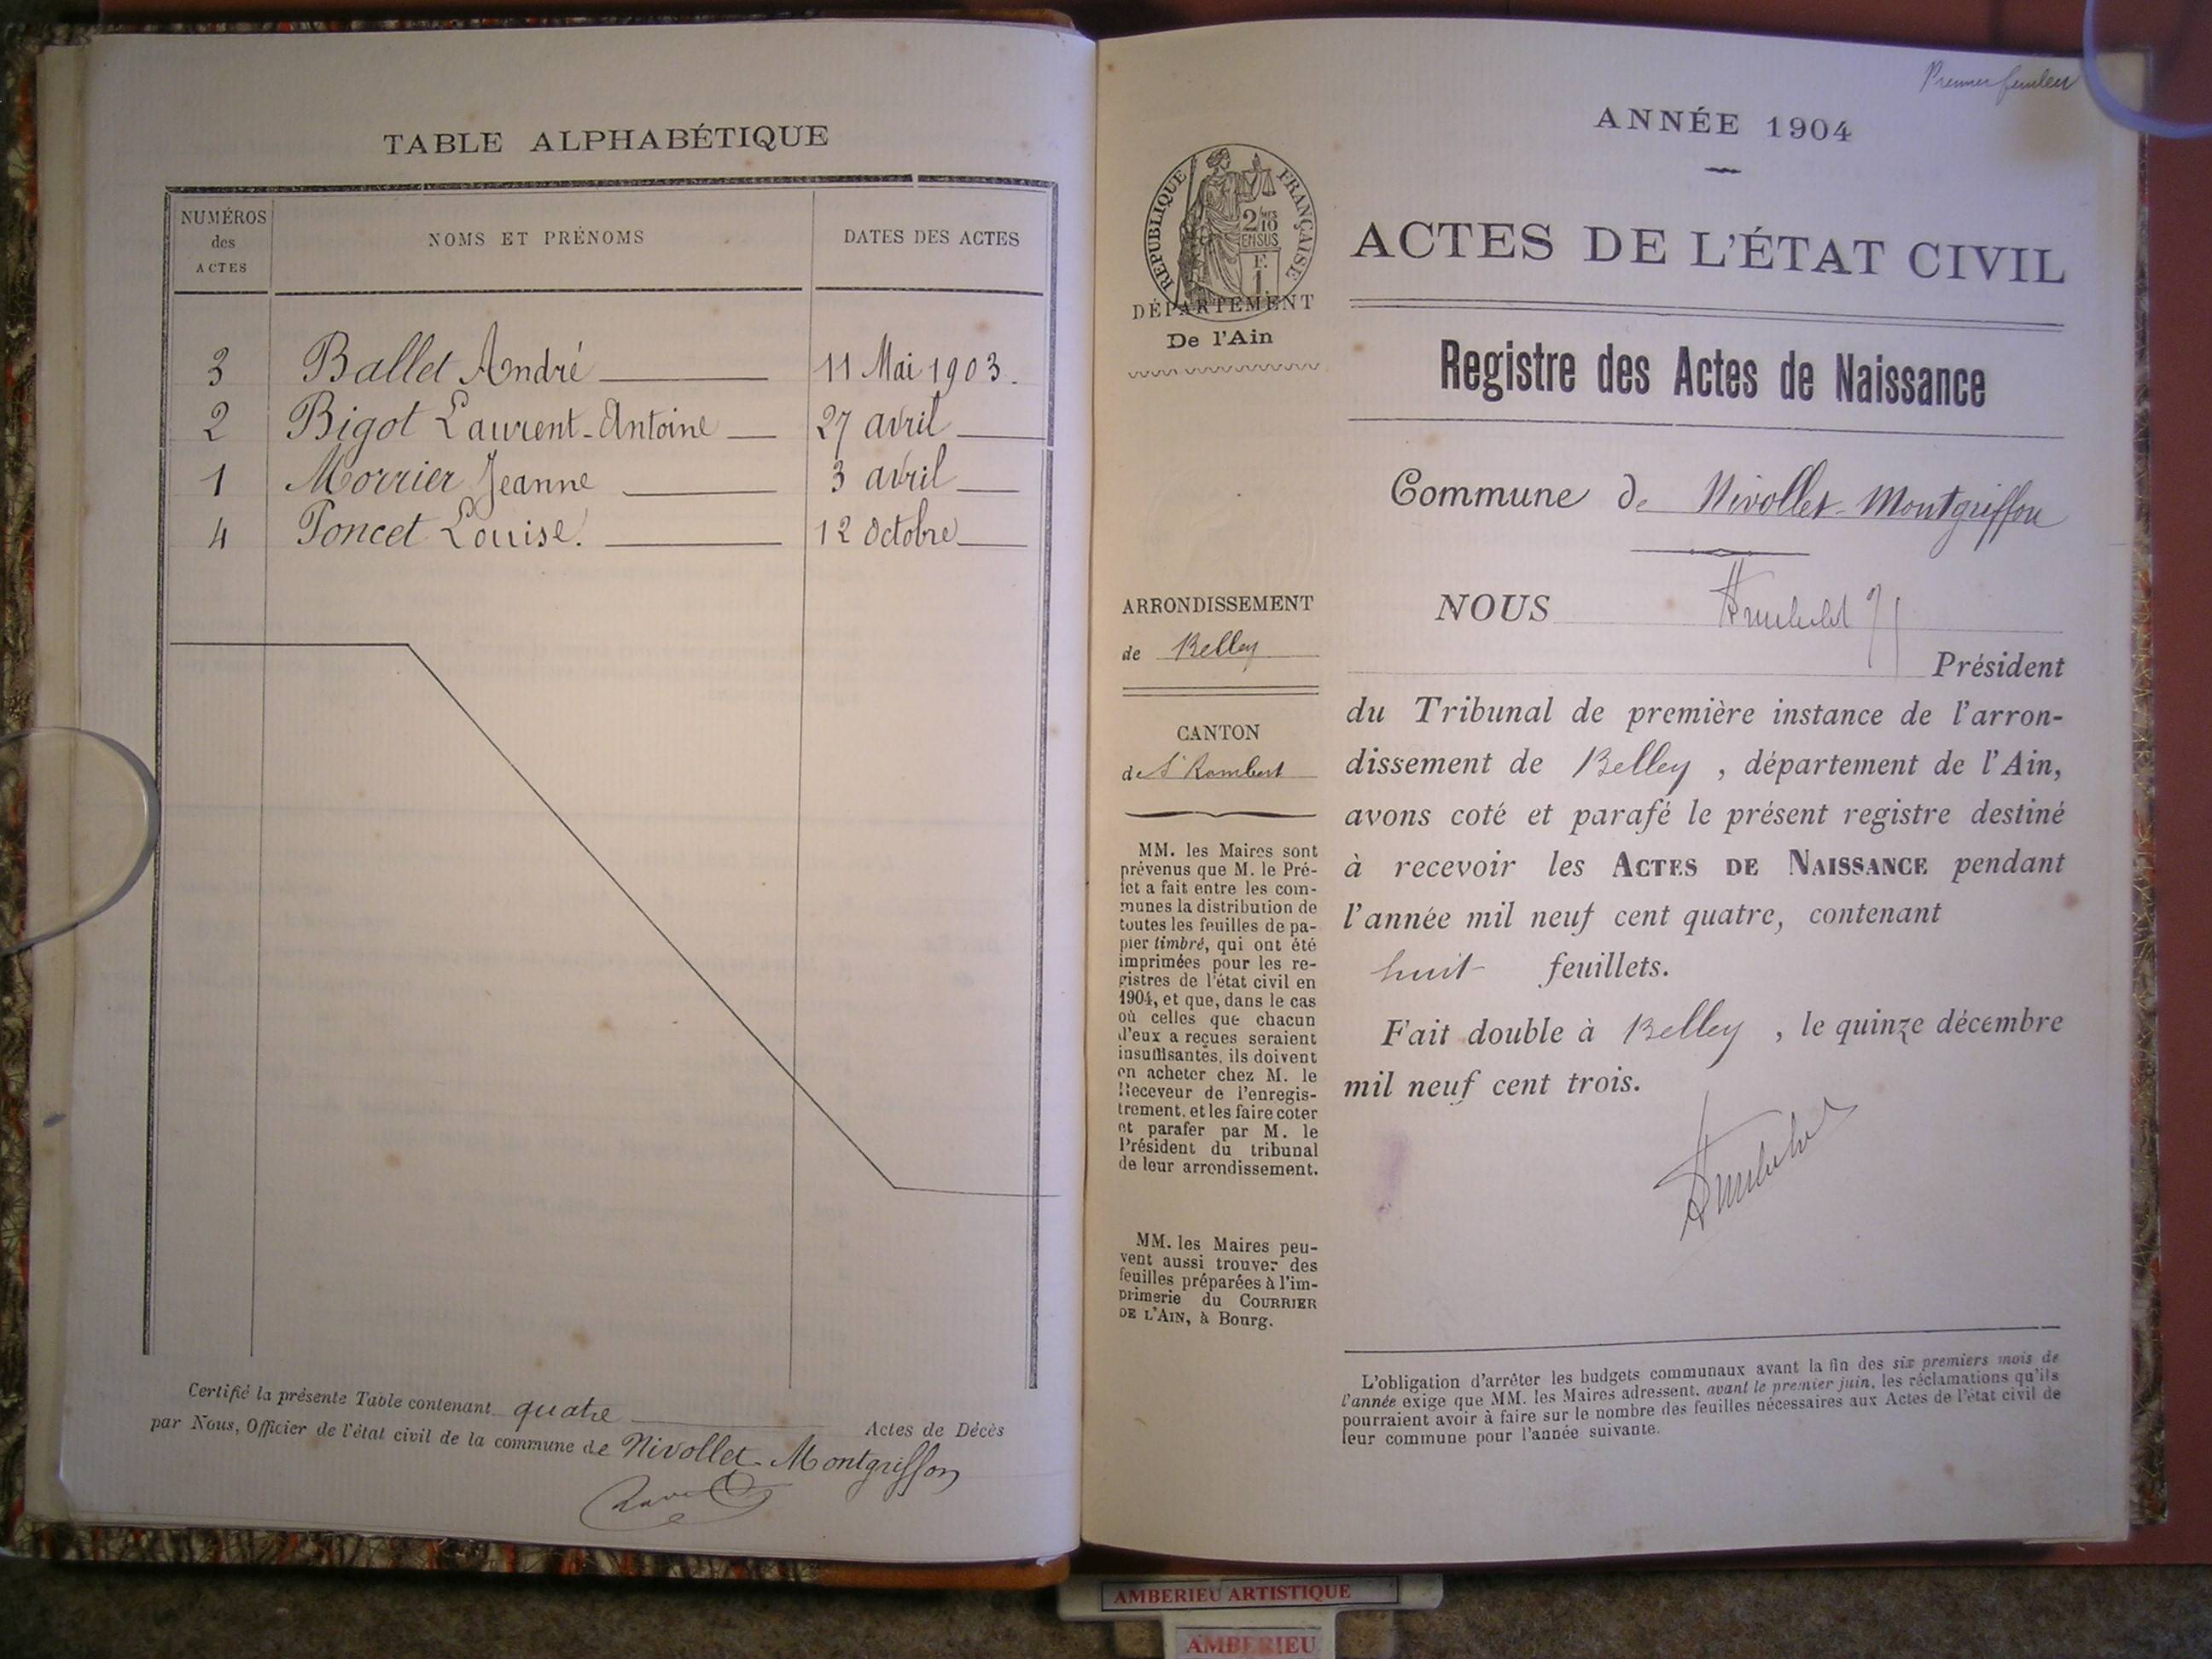 TABLE ALPHABÉTIQUE
NUMÉROS
des
ACTES
NOMS ET PRÉNOMS
DATES DES ACTES
3 Ballet André 11 Mai 1903.
2 Bigot Laurent-Antoine 27 avril
1 Morrier Jeanne 3 avril
4 Poncet Louise. 12 Octobre
Certifié la présente Table contenant quatre Actes de Décès
par Nous, Officier de l'état civil de la commune de Nivollet-Montgriffon
Premier feuillet
ANNÉE 1904
RÉPUBLIQUE FRANÇAISE
2/10MES
EN SUS
F.
1
DÉPARTEMENT
De l'Ain
ACTES DE L'ÉTAT CIVIL
Registre des Actes de Naissance
Commune de Nivollet-Montgriffon
ARRONDISSEMENT
de Belley
CANTON
de St Rambert
MM. les Maires sont
prévenus que M. le Pré-
fet a fait entre les com-
munes la distribution de
toutes les feuilles de pa-
pier timbré, qui ont été
imprimées pour les re-
gistres de l'état civil en
1904, et que, dans le cas
où celles que chacun
d'eux a reçues seraient
insuffisantes, ils doivent
en acheter chez M. le
Receveur de l'enregis-
trement, et les faire coter
et parafer par M. le
Président du tribunal
de leur arrondissement.
MM. les Maires peu-
vent aussi trouver des
feuilles préparées à l'im-
primerie du COURRIER
DE L'AIN, à Bourg.
NOUS
Président
du Tribunal de première instance de l'arron-
dissement de Belley, département de l'Ain,
avons coté et parafé le présent registre destiné
à recevoir les ACTES DE NAISSANCE pendant
l'année mil neuf cent quatre, contenant
huit feuillets.
Fait double à Belley, le quinze décembre
mil neuf cent trois.
L'obligation d'arrêter les budgets communaux avant la fin des six premiers mois de
l'année exige que MM. les Maires adressent, avant le premier juin, les réclamations qu'ils
pourraient avoir à faire sur le nombre des feuilles nécessaires aux Actes de l'état civil de
leur commune pour l'année suivante.
AMBERIEU ARTISTIQUE
AMBERIEU